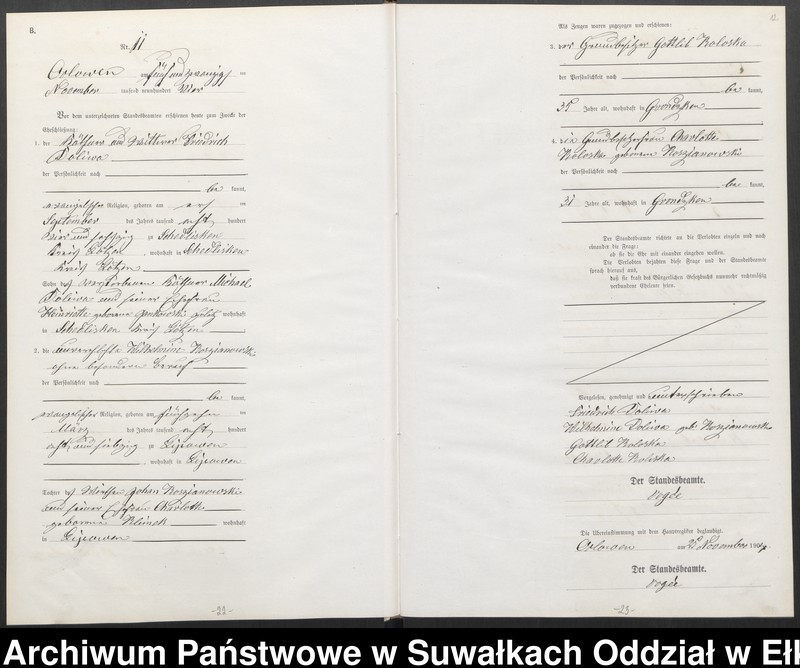 B.
Nr. 11
Orlowen am fünf und zwanzigsten
November tausend neunhundert vier
Vor dem unterzeichneten Standesbeamten erschienen heute zum Zwecke der
Eheschließung:
1. der Käthner und Wittwer Friedrich
Doliwa
der Persönlichkeit nach
be kannt,
evangelischer Religion, geboren am
September des Jahres tausend acht hundert
vier und sechszig zu Schedlisken
Kreis Lötzen, wohnhaft in Schedlisken
Kreis Lötzen
Sohn des verstorbenen Käthner Michael
Doliwa und seiner Ehefrau
Henriette geborene zuletzt wohnhaft
in Schedlisken Kreis Lötzen
2. die unverehelichte Wilhelmine Koszianowski
ohne besonderen Beruf
der Persönlichkeit nach
be kannt,
evangelischer Religion, geboren am fünfzehn ten
März des Jahres tausend acht hundert
acht und siebzig zu Lipowen
, wohnhaft in Lipowen
Tochter des Wirthen Johan Koszianowski
und seiner Ehefrau Charlotte
geborene wohnhaft
in Lipowen
-22-
Als Zeugen waren zugezogen und erschienen:
3. der Grundbesitzer Gottlieb Koloska
der Persönlichkeit nach
be kannt,
35 Jahre alt, wohnhaft in Grondzken
4. die Grundbesitzerfrau Charlotte
Koloska geborene Koszianowski
der Persönlichkeit nach
be kannt,
31 Jahre alt, wohnhaft in Grondzken
Der Standesbeamte richtete an die Verlobten einzeln und nach
einander die Frage:
ob sie die Ehe mit einander eingehen wollen.
Die Verlobten bejahten diese Frage und der Standesbeamte
sprach hierauf aus,
daß sie kraft des Bürgerlichen Gesetzbuchs nunmehr rechtmäßig
verbundene Eheleute seien.
Vorgelesen, genehmigt und unterschrieben
Friedrich Doliwa
Wilhelmine Doliwa geb. Koszianowski
Gottlieb Koloska
Charlotte Koloska
Der Standesbeamte.
Die Übereinstimmung mit dem Hauptregister beglaubigt.
Orlowen am 25 November 1904
Der Standesbeamte.
-23-
Archiwum Państwowe w Suwałkach Oddział w Eł